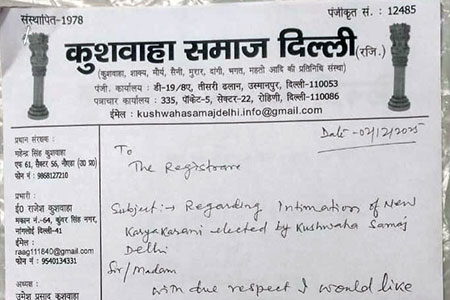 संस्थापित-1978
पंजीकृत सं. : 12485
कुशवाहा समाज दिल्ली (रजि.)
(कुशवाहा, शाक्य, मौर्य, सैनी, मुरार, दांगी, भगत, महतो आदि की प्रतिनिधि संस्था)
पंजि. कार्यालय : डी-19/8ए, तीसरी ढलान, उस्मानपुर, दिल्ली-110053
पत्राचार कार्यालय : 335, पॉकेट-5, सेक्टर-22, रोहिणी, दिल्ली-110086
ईमेल : kushwahasamajdelhi.info@gmail.com
Date - 02/12/2025
प्रधान संरक्षक :
महेन्द्र सिंह कुशवाहा
एफ 61, सैक्टर 56, नौएडा (उ० प्र०)
फोन नं० : 9868127210
प्रभारी :
ई० राजेश कुशवाहा
मकान नं.-64, कुंवर सिंह नगर,
नांगलोई दिल्ली-41
ईमेल :
raag111840@gmail.com
फोन नं. : 9540134331
अध्यक्ष :
उमेश प्रसाद कुशवाहा
To
The Registrare
Subject :- Regarding Intimation of New
Karyakarani elected by Kushwaha Samaj
Delhi
Sir/Madam
With due respect I would like